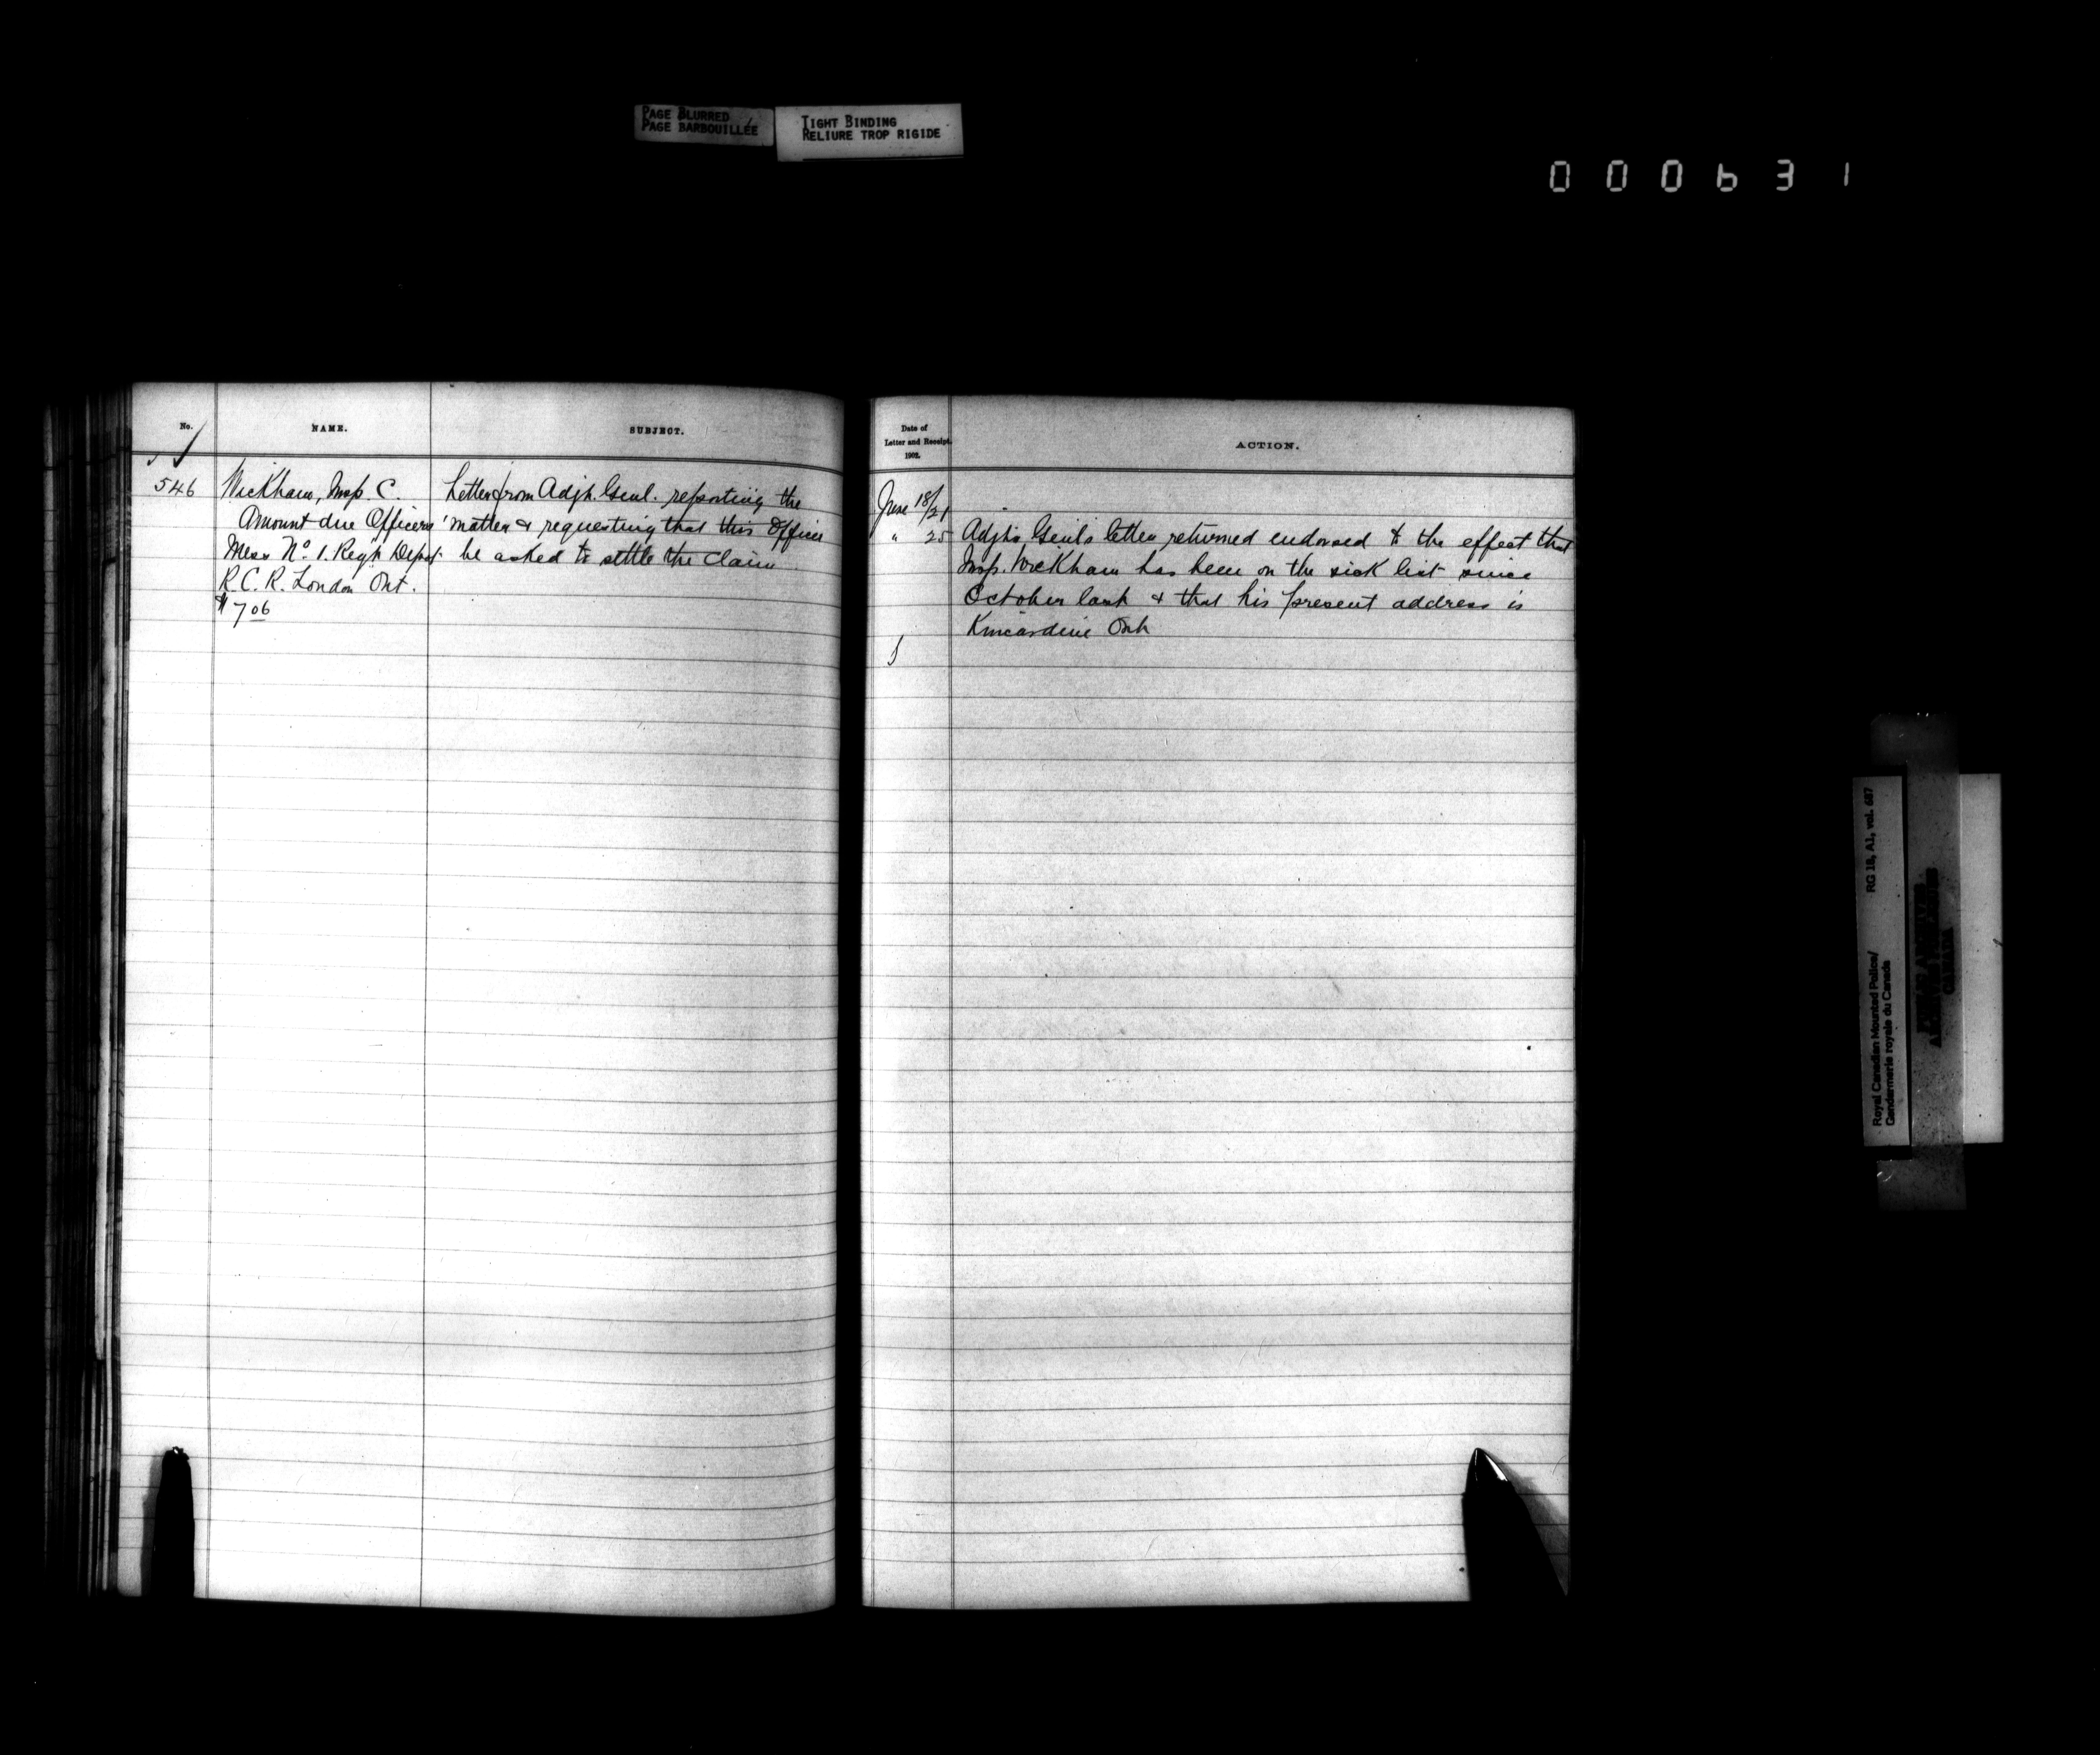 PAGE BLURRED
PAGE BARBOUILLÉE
TIGHT BINDING
RELIURE TROP RIGIDE
000631
No.
NAME.
SUBJECT.
546
Wickham, Insp. C.
Amount due Officers'
Mess No. 1. Reg't Depot
R.C.R. London Ont.
$7.06
Letter from Adjt. Genl. reporting the
matter & requesting that this Officer
be asked to settle the claim
Date of
Letter and Receipt.
1902.
ACTION.
June 18/21
" 25
Adjt. Genl's letter returned endorsed to the effect that
Insp. Wickham has been on the sick list since
October last & that his present address is
Kincardine Ont
Royal Canadian Mounted Police/
Gendarmerie royale du Canada
RG 18, A1, vol. 687